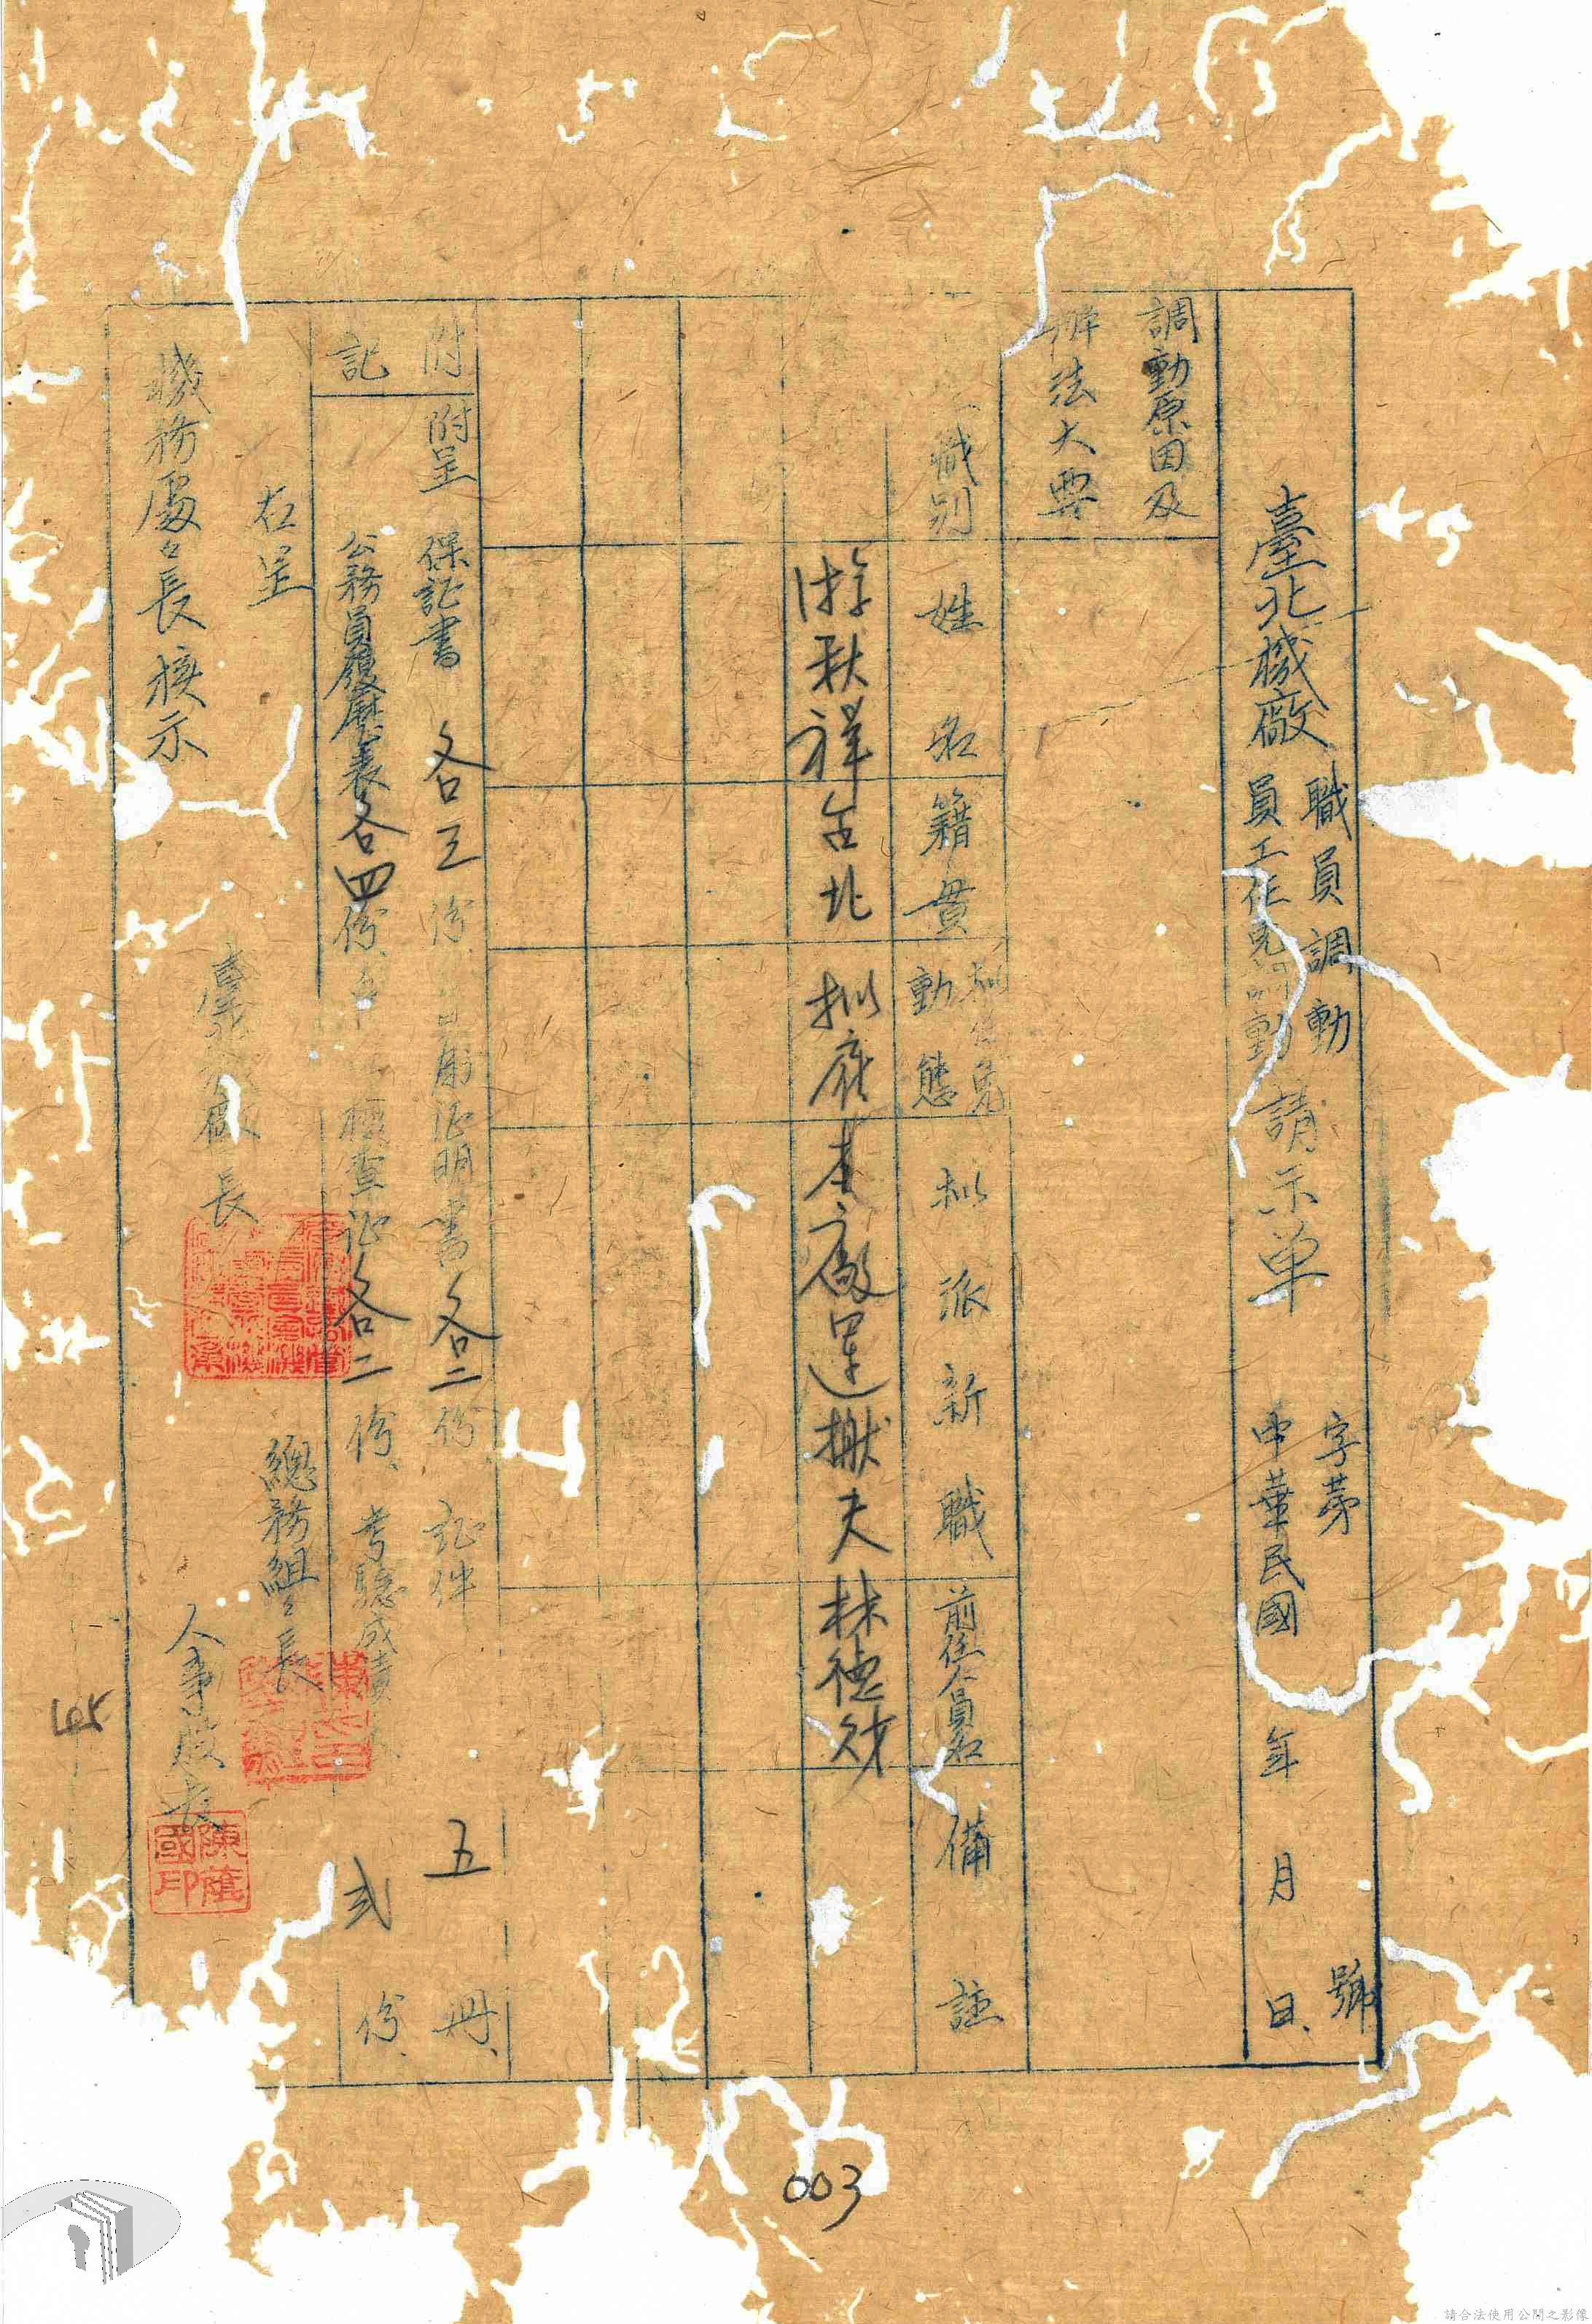 臺北機廠
職員調動
員工任免調動
請示单
字第 號
中華民國 年 月 日
調動原因及
辦法大要
職別
姓名
籍貫
擬任免
動態
拟派新職
前任人員名
備註
游秋祥
台北
拟雇
本廠運搬夫
林德財
附記
附呈
保証書各三份
身証明書各二份
証件五冊
公務員履歷表各四份
檢查証各二份
考驗成績
弍份
右呈
機務處々長核示
臺北機廠長
總務組々長
人事股長
陳蔭國印
003
請合法使用公開之影像